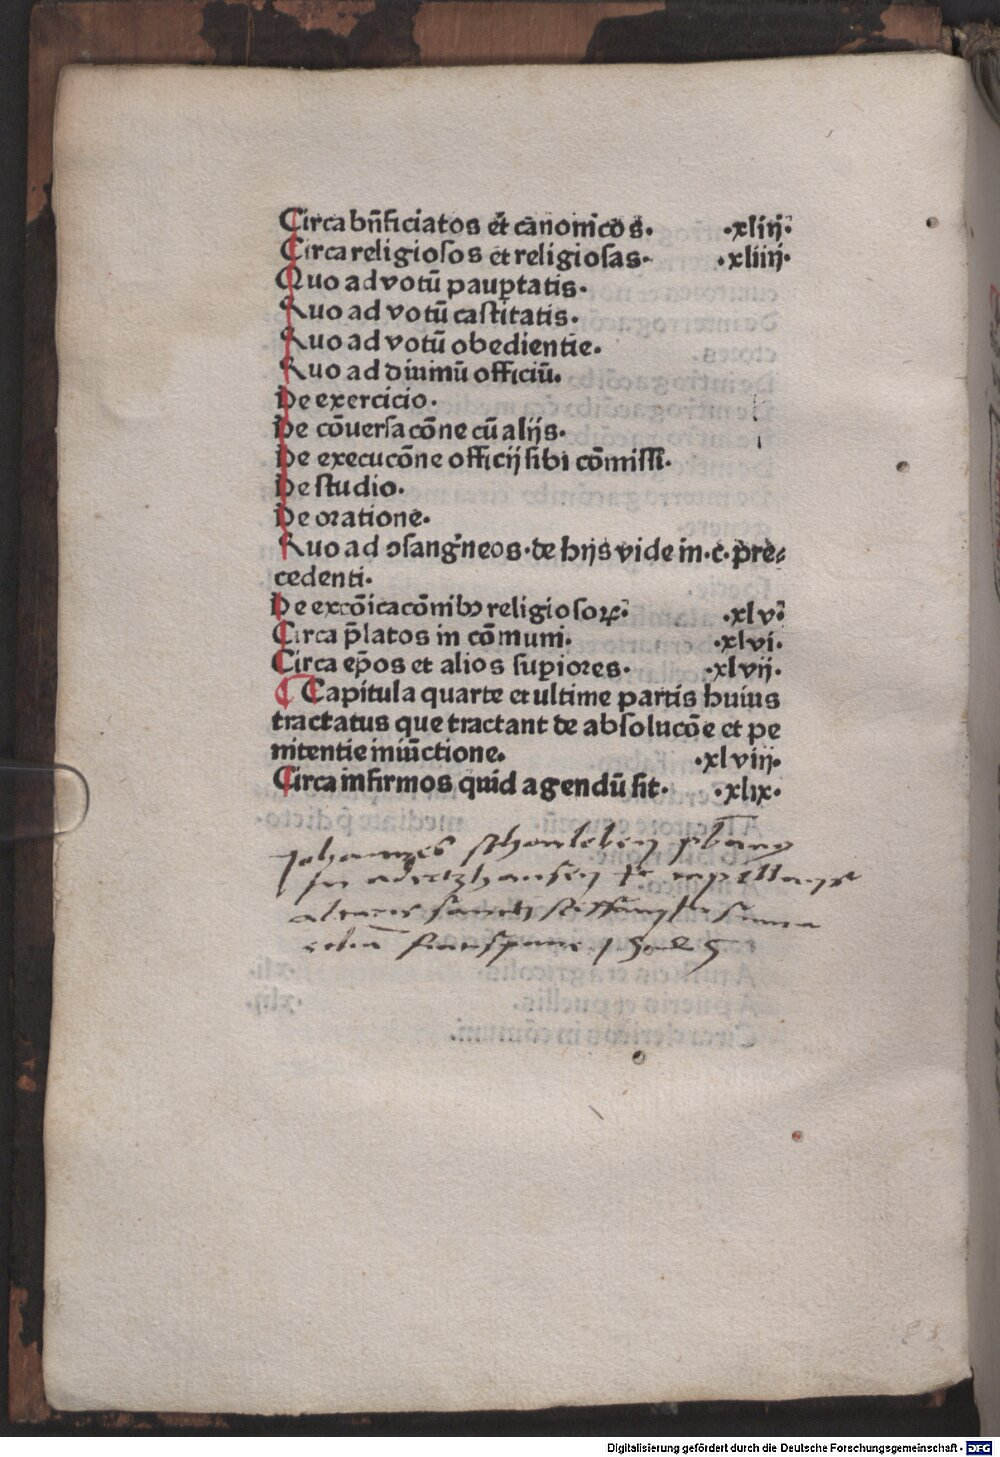 Circa bn̄ficiatos et canonicos. .xliij.
Circa religiosos et religiosas. .xliiij.
Quo ad votū paup̄tatis.
Quo ad votū castitatis.
Quo ad votū obedientie.
Quo ad diuinū officiū.
De exercicio.
De cōuersacōne cū alijs.
De execucōne officij sibi cōmissi.
De studio.
De oratione.
Quo ad ↄsang'neos. de hijs vide in .c. pre-
cedenti.
De excōicacōnibꝫ religiosoꝝ. .xlv.
Circa p̄latos in cōmuni. .xlvi.
Circa ep̄os et alios supꝑiores. .xlvij.
Capitula quarte et ultime partis huius
tractatus que tractant de absolucōe et pe
nitentie iniūctione. .xlviij.
Circa infirmos quid agendū sit. .xlix.
Johannes
in et
altaris sancti
Digitalisierung gefördert durch die Deutsche Forschungsgemeinschaft - DFG